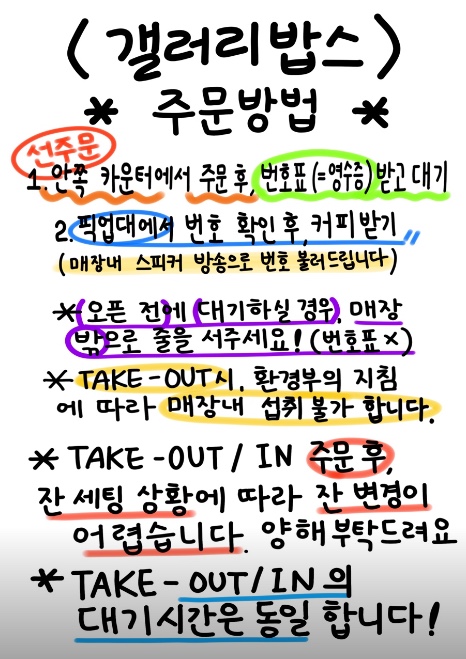 < 갤러리밥스 >
* 주문방법 *
선주문
1. 안쪽 카운터에서 주문 후, 번호표(=영수증) 받고 대기
2. 픽업대에서 번호 확인 후, 커피받기
(매장내 스피커 방송으로 번호 불러드립니다)
* (오픈 전)에 (대기하실 경우), 매장
밖으로 줄을 서주세요! (번호표 x)
* TAKE-OUT시, 환경부의 지침
에 따라 매장내 섭취 불가 합니다.
* TAKE-OUT / IN 주문 후,
잔 세팅 상황에 따라 잔 변경이
어렵습니다. 양해부탁드려요
* TAKE-OUT/IN의
대기시간은 동일 합니다!